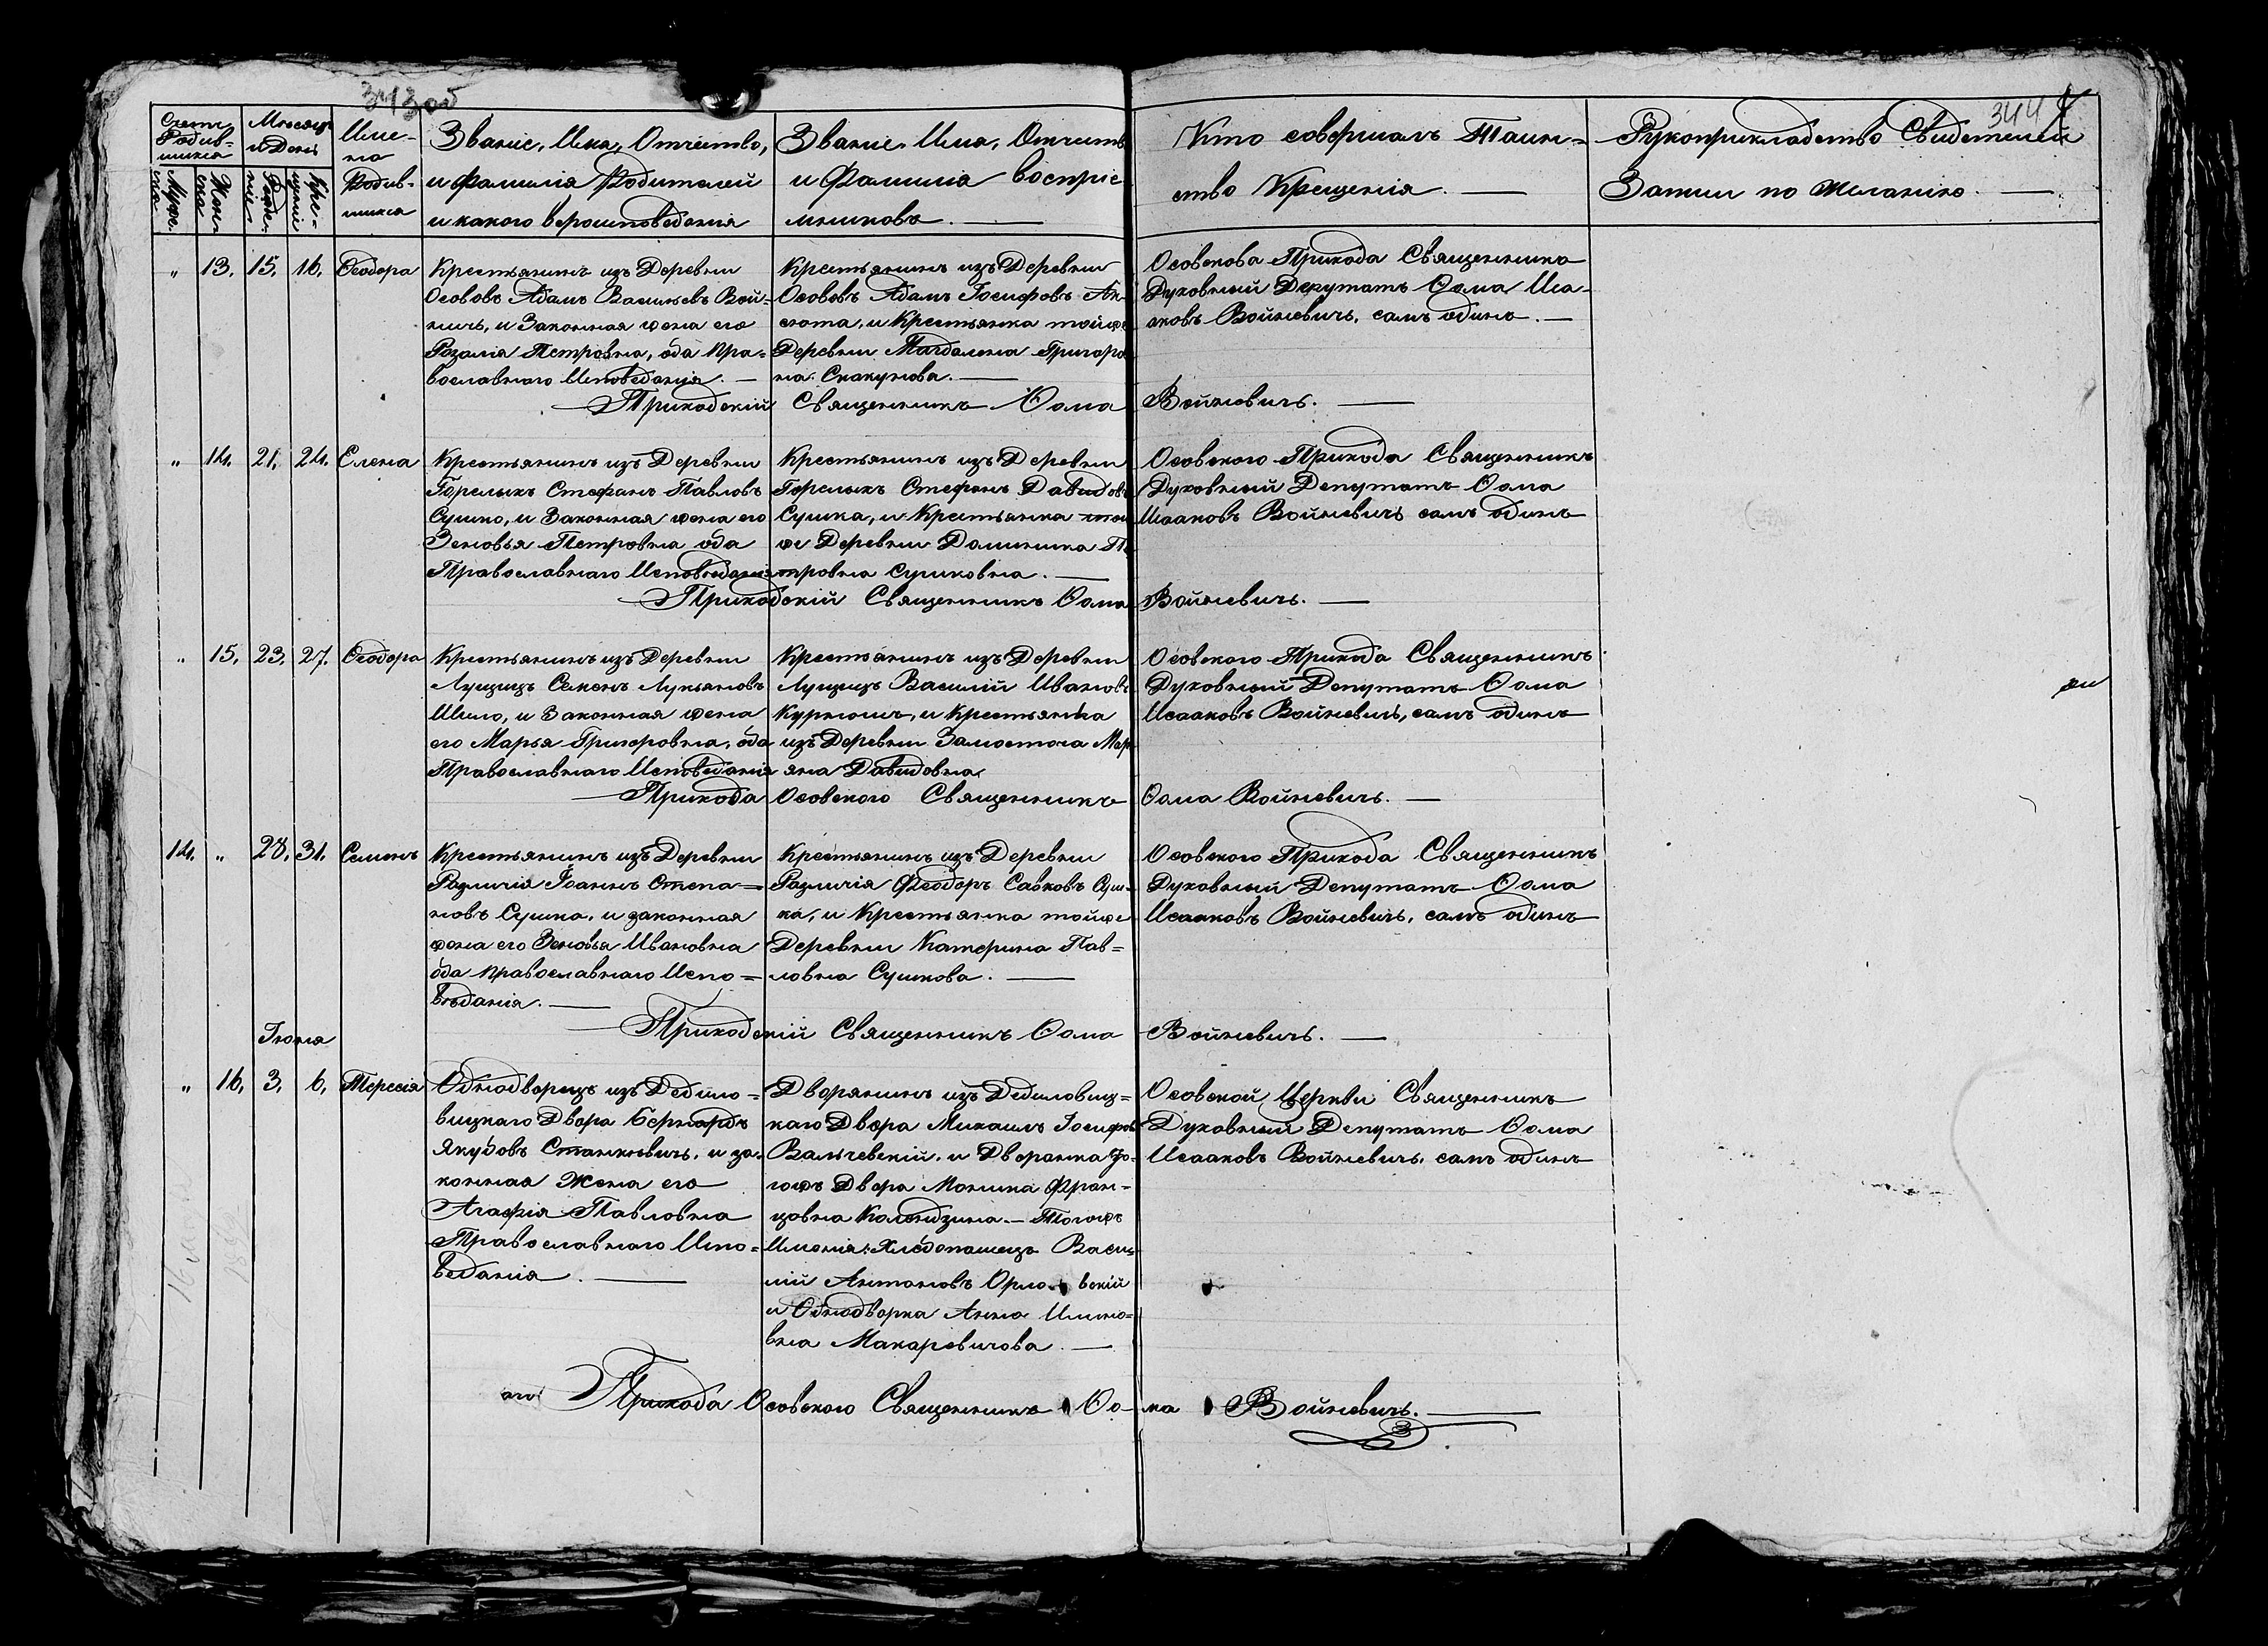 343об
344
Счетъ Родив-шихся
Мужеска
Женска
Месяцъ и День
Рожденіе
Крещеніе
Имена Родив-шихся
Званіе, Имя, Отчество,
и Фамилія Родителей
и какого вероисповеданія
Званіе, Имя, Отчеств
и Фамилія воспріе
мниковъ. —
Кто совершалъ Таин=
ство Крещенія. —
Рукоприкладство Свидетелей
Записи по Желанію. —
„ 13. 15. 16. Ѳеодора
Крестьянинъ изъ Деревни
Осововъ Адамъ Васильевъ Вой=
ничъ, и Законная жена его
Розалія Петровна, оба Пра=
вославнаго Исповеданія. —
Крестьянинъ изъ Деревни
Осововъ Адамъ Іосифовъ
и Крестьянка тойже
Деревни Магдалена Григоро
на Скакунова. —
Осовскова Прихода Священника
Духовный Депутатъ Ѳома Иса-
аковъ Войневичъ, самъ одинъ. —
Приходскій Священникъ Ѳома Войневичъ. —
„ 14. 21. 24. Елена
Крестьянинъ изъ Деревни
Горелыхъ Стефанъ Павловъ
Сушко, и Законная жена его
Зеновья Петровна оба
Православнаго Исповеданія
Крестьянинъ изъ Деревни
Горелыхъ Стефанъ Давидовъ
Сушка, и Крестьянка той
же Деревни Доминика Пе
тровна Сушковна. —
Осовского Прихода Священникъ
Духовный Депутатъ Ѳома
Исааковъ Войневичъ самъ одинъ
Приходскій Священникъ Ѳома Войневичъ. —
„ 15. 23. 27. Ѳеодора
Крестьянинъ изъ Деревни
Лущицъ Семенъ Лукьяновъ
Шило, и Законная жена
его Марья Григоровна, оба
Православнаго Исповеданія
Крестьянинъ изъ Деревни
Лущицъ Василій Ивановъ
и Крестьянка
изъ Деревни Замосточа Мар
яна Давидовна
Осовского Прихода Священникъ
Духовный Депутатъ Ѳома
Исааковъ Войневичъ, самъ одинъ
Прихода Осовского Священникъ Ѳома Войневичъ. —
14. „ 28. 31. Семенъ
Крестьянинъ изъ Деревни
Различія Іоаннъ Степа=
новъ Сушка, и законная
жена его Зеновья Ивановна
оба православнаго Испо=
вѣданія. —
Крестьянинъ изъ Деревни
Различія Феодоръ Савковъ Суш-
ка, и Крестьянка тойже
Деревни Катерина Пав=
ловна Сушкова. —
Осовского Прихода Священникъ
Духовный Депутатъ Ѳома
Исааковъ Войневичъ, самъ одинъ
Приходскій Священникъ Ѳома Войневичъ. —
Іюня
„ 16. 3. 6. Тересія
Однодворецъ изъ Дедило=
вицкаго Двора Бернардъ
Якубовъ Станкевичъ, и за-
конная Жена его
Агафія Павловна
Православнаго Испо=
веданія. —
Дворянинъ изъ Дедиловиц=
каго Двора Михаилъ Іосифов
Вальчевскій, и Дворянка то-
гожъ Двора Моника Фран=
цовна Колендзина. — Тогожъ
Именія Хлебопашецъ Васи
лій Антоновъ Орло вскій
и Однодворка Анна Иліно=
вна Макаревичова. —
Осовской Церкви Священникъ
Духовный Депутатъ Ѳома
Исааковъ Войневичъ, самъ одинъ
Прихода Осовского Священникъ Ѳо-ма Войневичъ. —